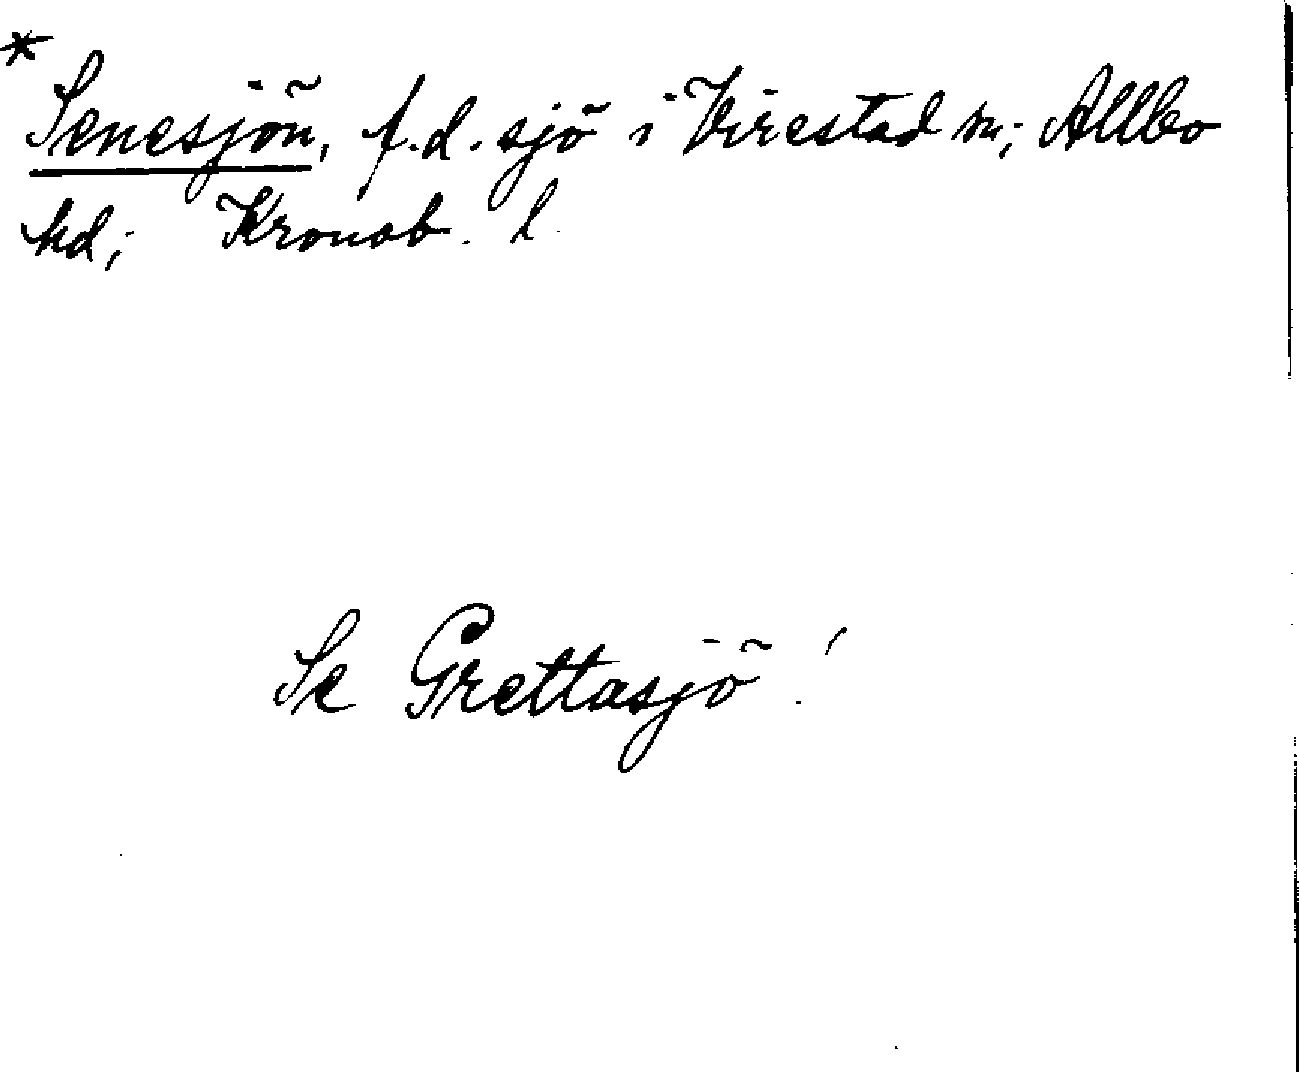 * Senesjön, f.d. sjö i Virestad sn; Allbo
hd; Kronob. l
Se Grettasjö!